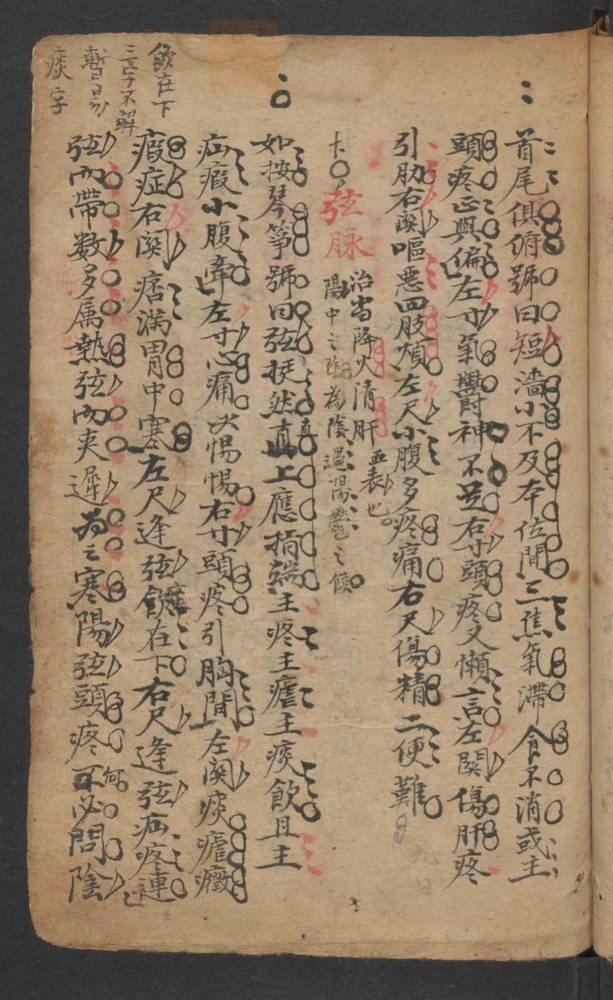 首尾俱俯號曰短濇小不及本位間三焦氣滯食不消或主
頭疼正與偏左寸氣鬱神不足右寸頭疼又懶言左関傷肝疼
引肋右関嘔悪四肢煩左尺小腹多疼痛右尺傷精二便難
弦脉
治當降火清肝
陽中之陰為陰過陽鬱之候
如按琴箏號曰弦挺然直上應指端主疼主瘧主痰飲且主
疝瘕小腹牽左寸心痛又惕惕右寸頭疼引胸間左関痰瘧癥
瘕症右関痞滿胃中寒左尺逢弦飲在下右尺逢弦疝疼連
弦而帶数多属熱弦而夾遲為之寒陽弦頭疼何必問陰
飲在下
三字不解
暫易
痰字